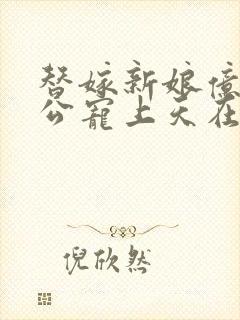 替嫁新娘億
公寵上天在
倪欣然